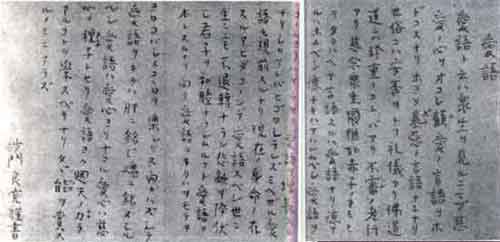 愛語
愛語ト云ハ衆生ヲ見ルニマヅ慈
愛ノ心ヲオコシ顧愛ノ言語ヲホ
ドコスナリオホヨソ暴悪ノ言語ナキナリ
世俗ニハ安否ヲトフ礼儀アリ佛
道ニハ珍重ノコトバアリ不審ノ孝行
アリ慈念衆生猶如赤子ノオモヒ
ヲタクハヘテ言語スルハ愛語ナリ徳ア
ルハホムベシ徳ナキハアハレムベシ愛語ヲ
ナリシカレバヒゴロシラレズミヘザル愛
語モ現前スルナリ現在ノ身命ノ存
スルアヒダコノンデ愛語スベシ世々生
生ニモ不退轉ナラン怨敵ヲ降伏
シ君子ヲ和睦ナラシムルコト愛語ヲ
本トスルナリ向テ愛語ヲキクハオモテヲ
ヨロコバシメココロヲ楽シクス向ハズシテ
愛語ヲキクハ肝ニ銘ジ魂ニ銘ズシルベ
シ愛語ハ愛心ヨリオコル愛心ハ慈
心ヲ種子トセリ愛語ヨク廻天ノ力
アルコトヲ學スベキナリタダ能ヲ賞ス
ルノミニアラズ
沙門良寛謹書